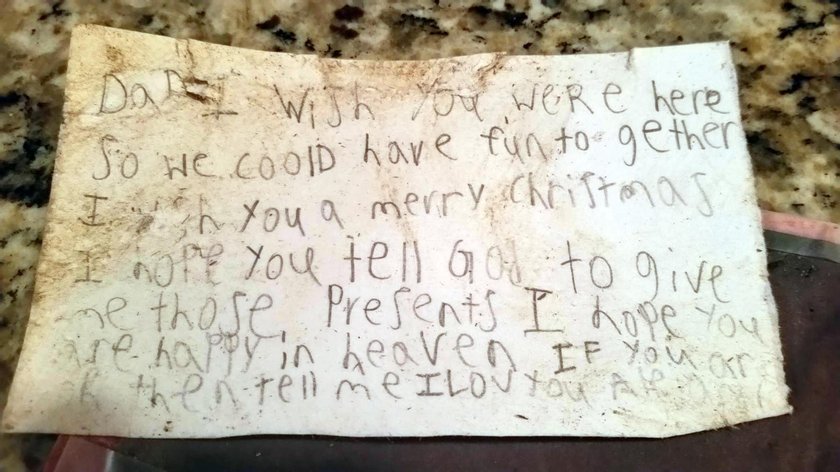 Dad I Wish You WERE here
So WE COOlD have fun to gether
I wish You a merry Christmas
I hope You tell God to give
me those Presents I hope You
are happy in heaven IF You are
then tell me I LOV You